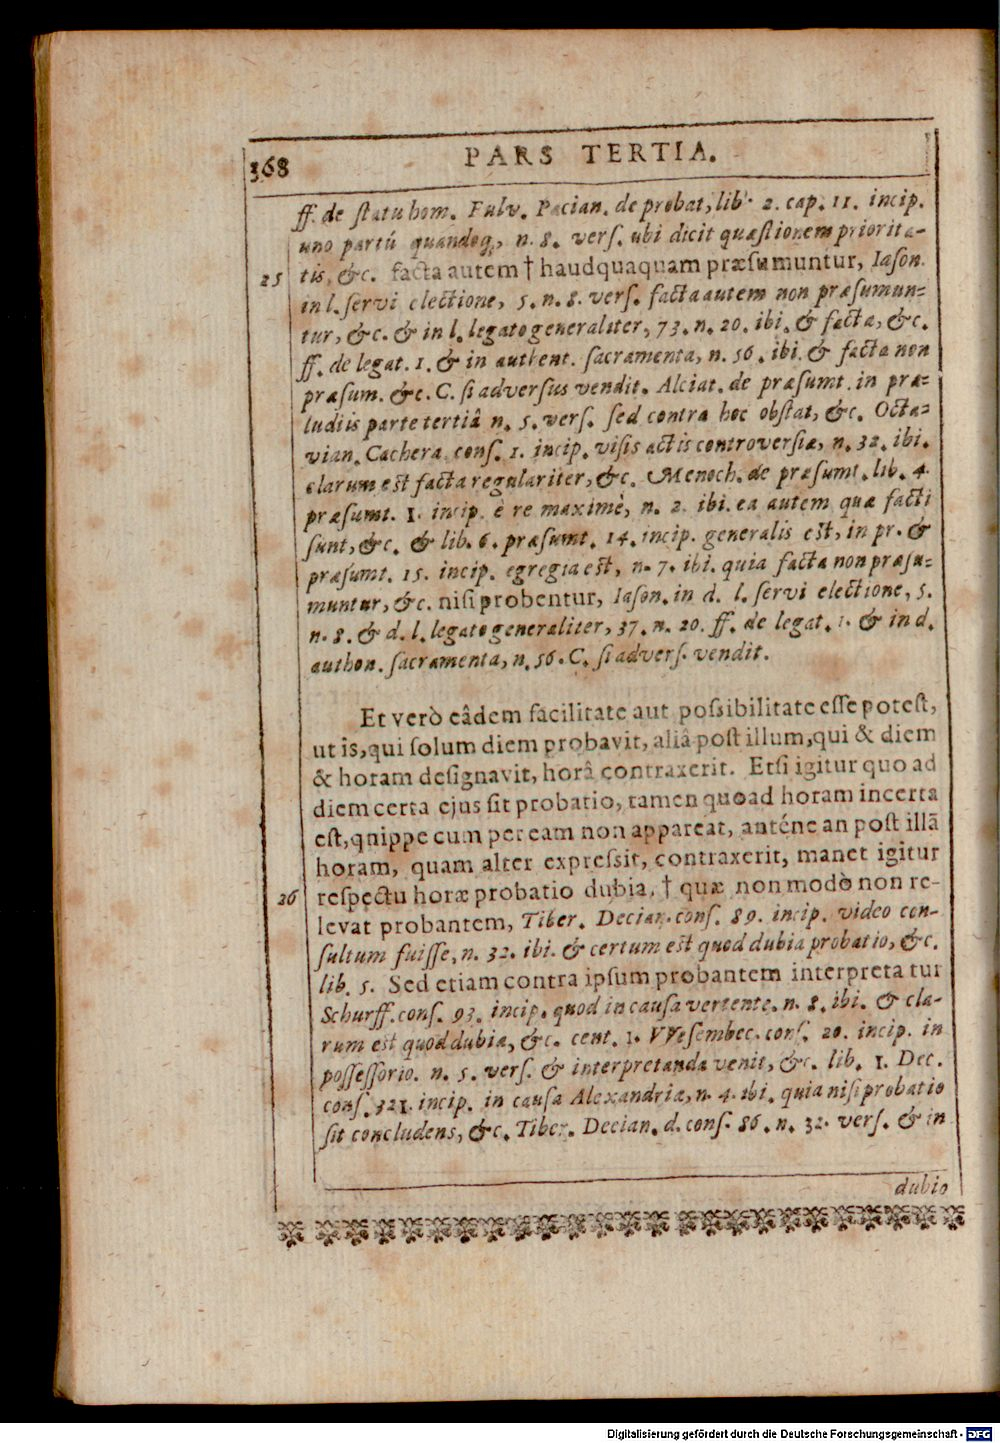 368 PARS TERTIA.
ff. de ſtatu hom. Fulv. Pacian. de probat, lib. 2. cap. 11. incip.
uno partú quandoq, n. 8. verſ. ubi dicit quæſtionem priorita-
25 tis, &c. facta autem † haudquaquam præſumuntur, Iaſon.
in l. ſervi electione, 5. n. 8. verſ. facta autem non præſumun-
tur, &c. & in l. legato generaliter, 73. n. 20. ibi. & facta, &c.
ff. de legat. 1. & in authent. ſacramenta, n. 56. ibi. & facta non
præſum. &c. C. ſi adverſus vendit. Alciat. de præſumt. in præ-
ludiis parte tertiâ n. 5. verſ. ſed contra hoc obſtat, &c. Octa-
vian. Cachera. conſ. 1. incip. viſis actis controverſiæ, n. 32. ibi.
clarum eſt facta regulariter, &c. Menoch. de præſumt. lib. 4.
præſumt. 1. incip. è re maximè, n. 2. ibi. ea autem quæ facti
ſunt, &c. & lib. 6. præſumt. 14. incip. generalis eſt, in pr. &
præſumt. 15. incip. egregia eſt, n. 7. ibi. quia facta non præſu-
muntur, &c. niſi probentur, Iaſon. in d. l. ſervi electione, 5.
n. 8. & d. l. legato generaliter, 37. n. 20. ff. de legat. 1. & in d.
authon. ſacramenta, n. 56. C. ſi adverſ. vendit.
Et verò eâdem facilitate aut poſsibilitate eſſe poteſt,
ut is, qui ſolum diem probavit, aliâ poſt illum, qui & diem
& horam deſignavit, horâ contraxerit. Etſi igitur quo ad
diem certa ejus ſit probatio, tamen quoad horam incerta
eſt, quippe cum per eam non appareat, anténe an poſt illã
horam, quam alter expreſsit, contraxerit, manet igitur
26 reſpectu horæ probatio dubia, † quæ non modò non re-
levat probantem, Tiber. Decian. conſ. 89. incip. video con-
ſultum fuiſſe, n. 32. ibi. & certum eſt quod dubia probatio, &c.
lib. 5. Sed etiam contra ipſum probantem interpreta tur
Schurff. conſ. 93. incip. quod in cauſa vertente. n. 8. ibi. & cla-
rum eſt quod dubia, &c. cent. 1. VVeſembec. conſ. 20. incip. in
poſſeſſorio. n. 5. verſ. & interpretanda venit, &c. lib. 1. Dec.
conſ. 321. incip. in cauſa Alexandriæ, n. 4. ibi. quia niſi probatio
ſit concludens, &c. Tiber. Decian. d. conſ. 86. n. 32. verſ. & in
dubio
Digitalisierung gefördert durch die Deutsche Forschungsgemeinschaft - DFG